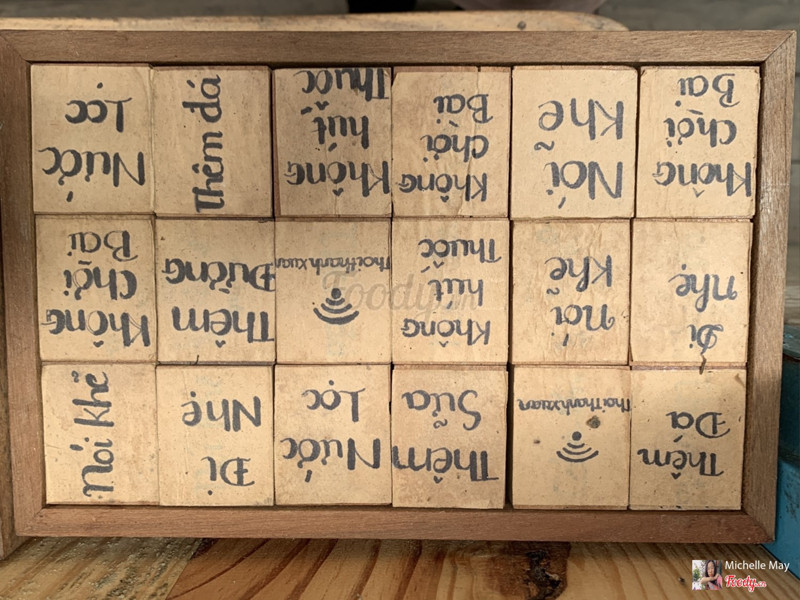 Nước
Lọc
Thêm đá
Không
hút
Thuốc
Không
Chơi
Bài
Nói
Khẽ
Không
Chơi
Bài
Không
Chơi
Bài
Thêm
Đường
Thoithanhxuan
Không
hút
Thuốc
Nói
Khẽ
Đi
nhẹ
Nói khẽ
Đi
Nhẹ
Thêm Nước
Lọc
Thêm
Sữa
ThoiThanhxuan
Thêm
Đá
Foody.vn
Michelle May
Foody.vn